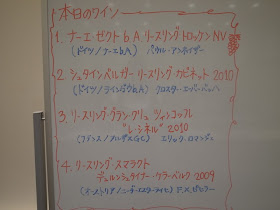 本日のワイン
1. ナーエ・ゼクト b.A リースリング トロッケン NV
(ドイツ/ナーエ b.A) パウル・アンホイザー
2. シュタインベルガー リースリング カビネット 2010
(ドイツ/ラインガウ b.A) クロスター・エーバーバッハ
3. リースリング・グラン・クリュ ツィンコッフレ
"レ・シネル" 2010
(フランス/アルザス G.C) エリック・ロマンジェ
4. リースリング・スマラクト
デュルンシュタイナー・ケラーベルク 2009
(オーストリア/ニーダーエスターライヒ) F.X.ピヒラー